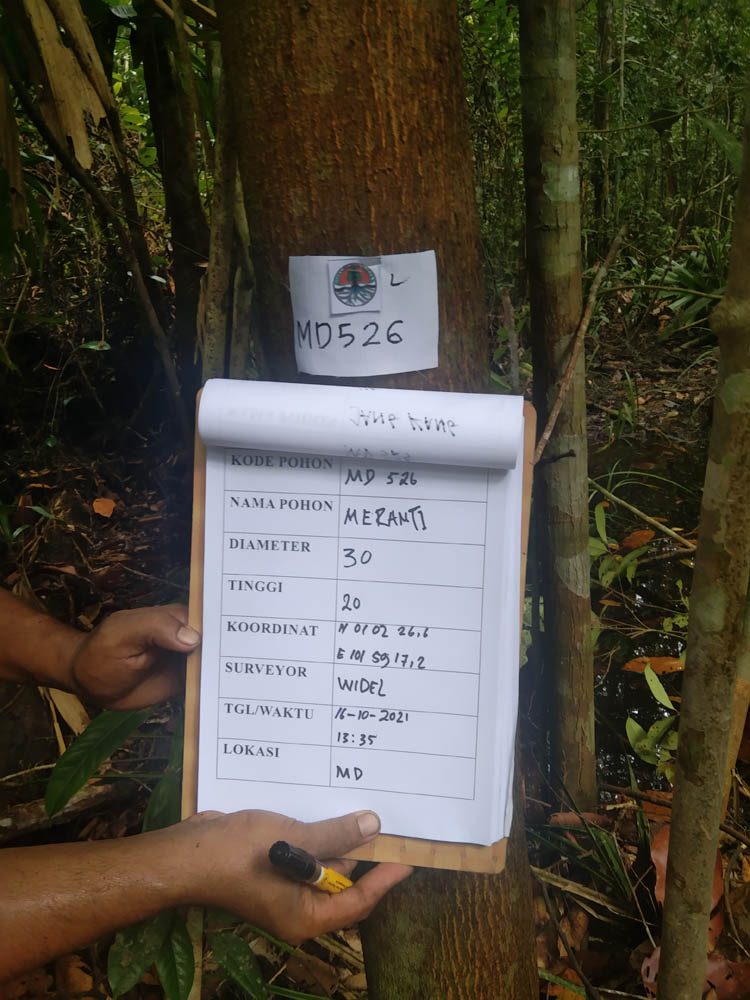 L
MD526
KODE POHON MD 526
NAMA POHON MERANTI
DIAMETER 30
TINGGI 20
KOORDINAT N 01 02 26,6
E 101 59 17,2
SURVEYOR WIDEL
TGL/WAKTU 16-10-2021
13:35
LOKASI MD